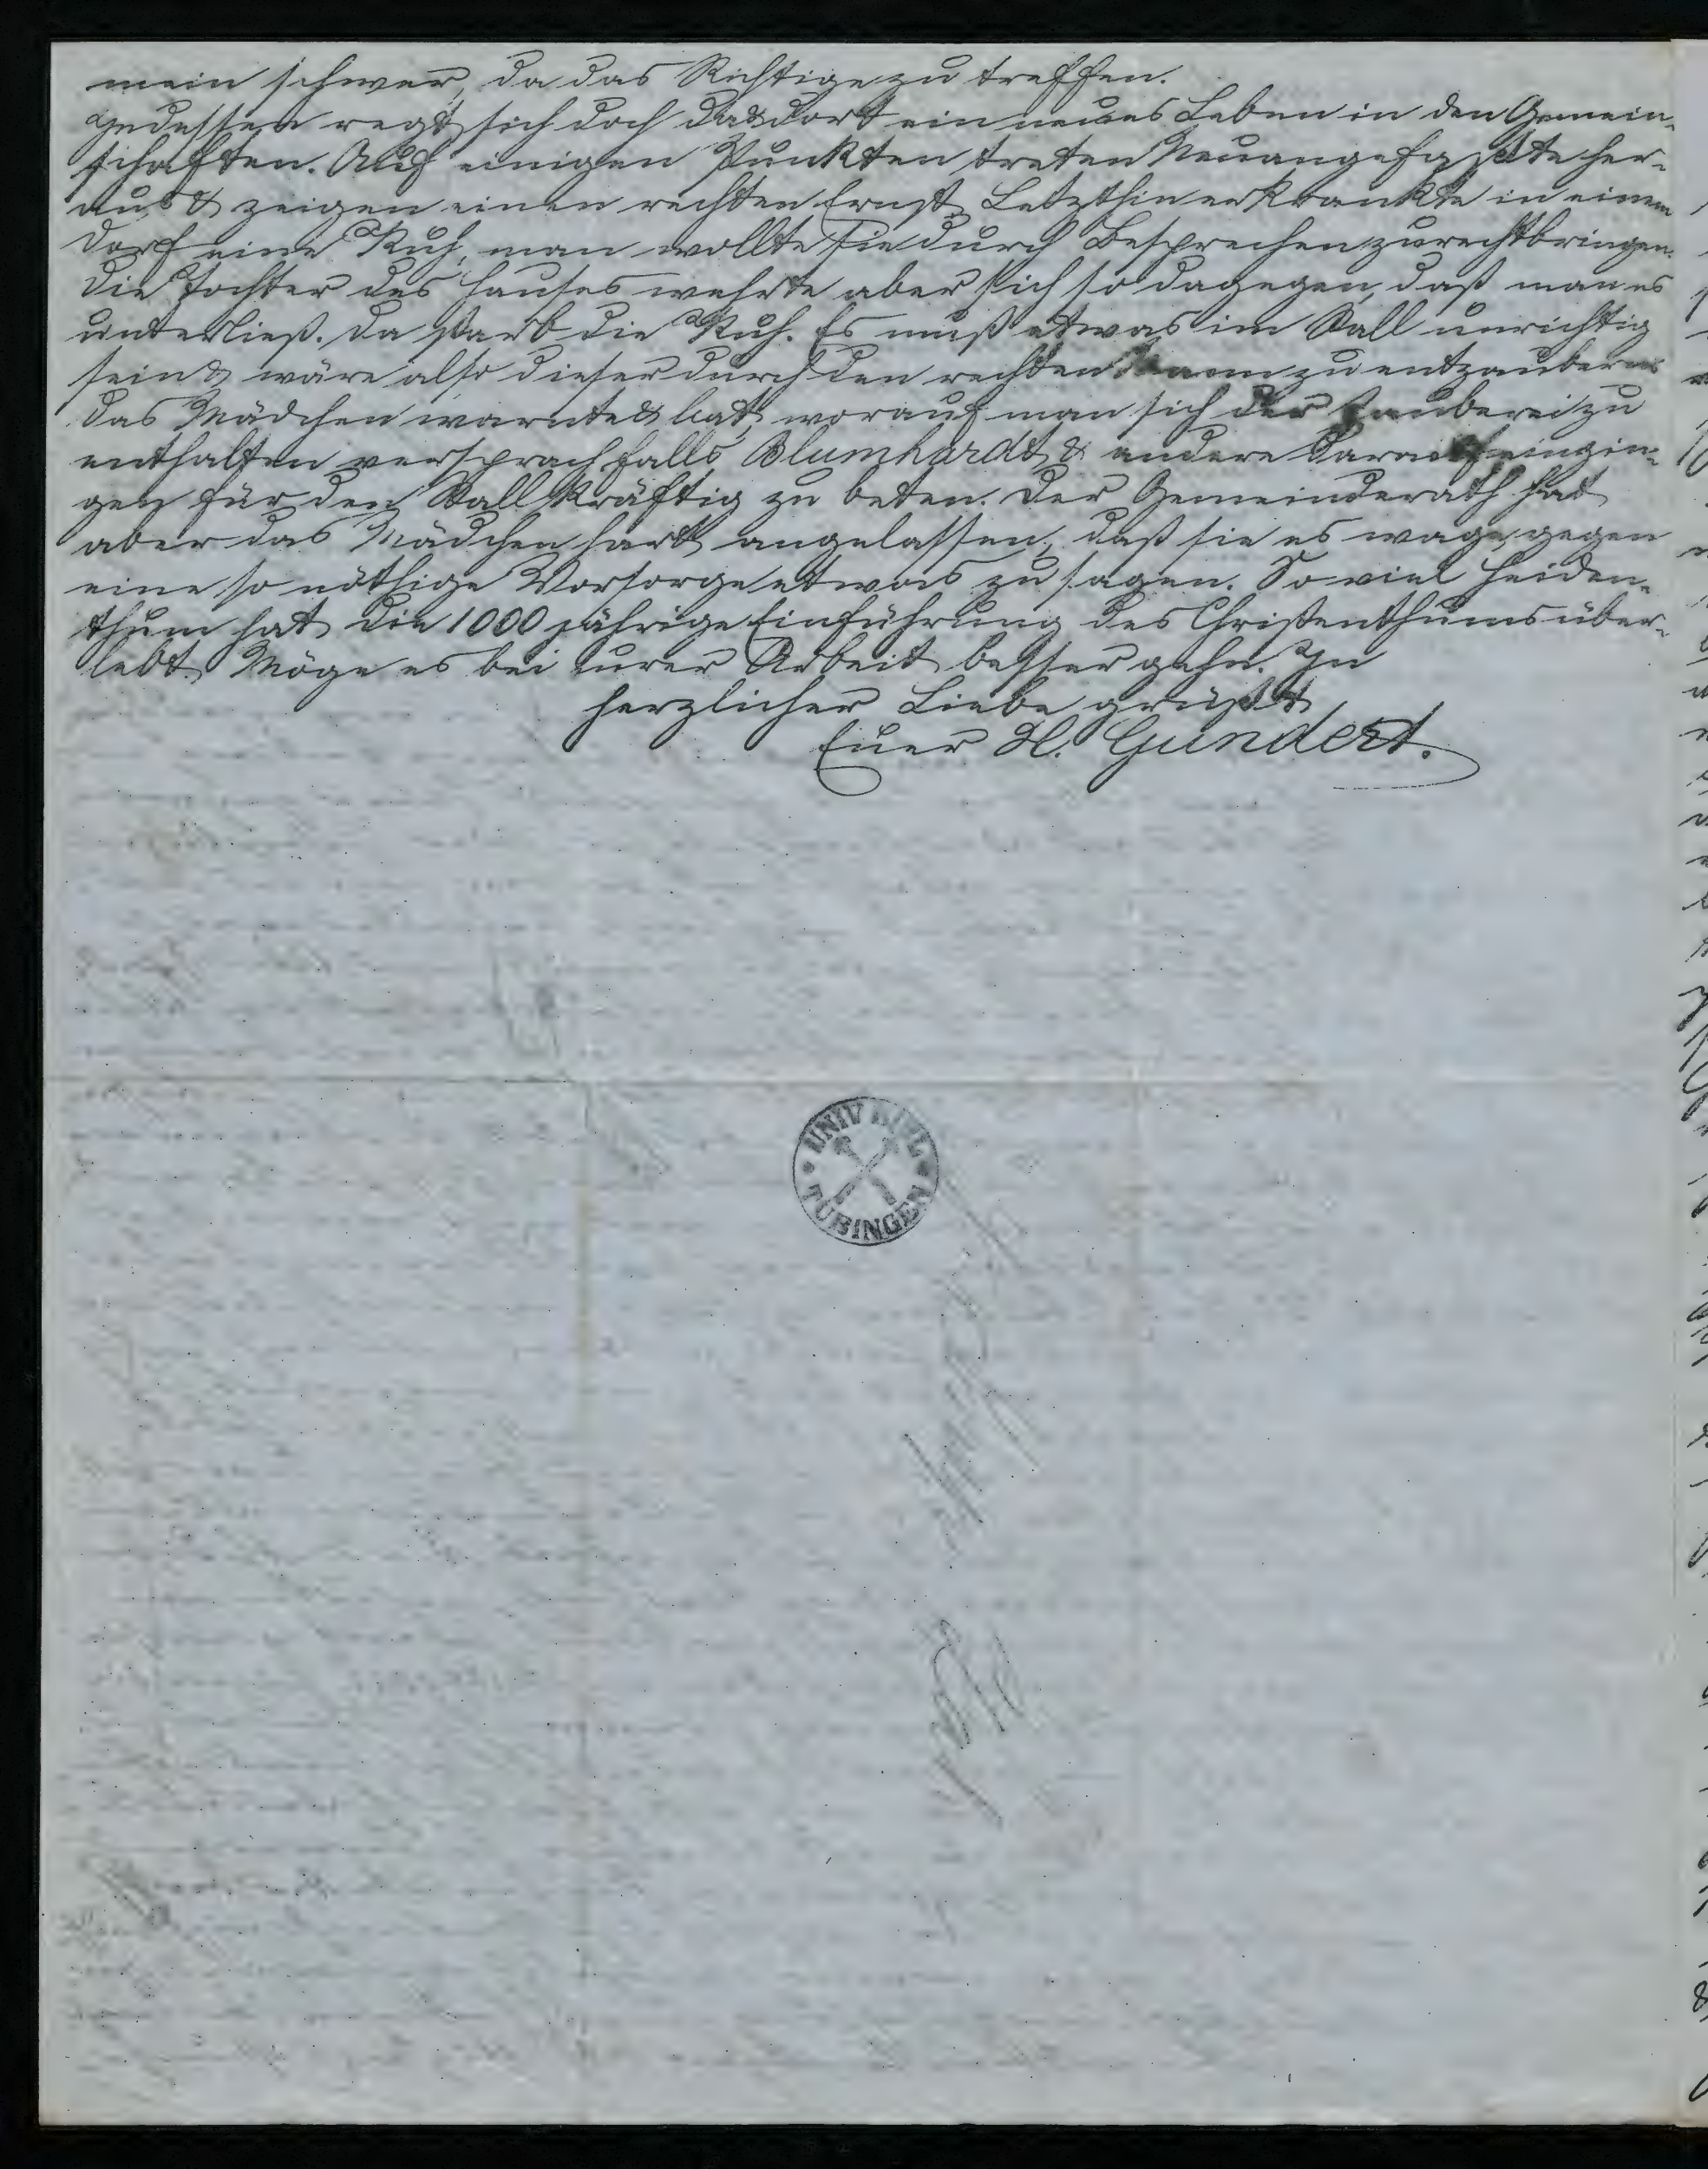 mein schwer, da das Richtige zu treffen.
Indessen regt sich doch da & dort ein neues Leben in den Gemein-
schaften. Auf einigen Punkten treten Neuangefaßte her-
aus & zeigen einen rechten Ernst. Letzthin erkrankte in einem
Dorf eine Kuh, man wollte sie durch Besprechen zurechtbringen.
Die Tochter des Hauses wehrte aber sich so dagegen, daß man es
unterließ. Da starb die Kuh. Es muß etwas im Stall unrichtig
sein & wäre also dieser durch den rechten Mann zu entzaubern
Das Mädchen warnte & bat, worauf man sich der Zauberei zu
enthalten versprach falls Blumhardt & andere darauf eingin-
gen für den Stall kräftig zu beten. Der Gemeinderath hat
aber das Mädchen hart angelassen, daß sie es wage, gegen
eine so nöthige Vorsorge etwas zu sagen. So viel Heiden-
thum hat die 1000 jährige Einführung des Christenthums über-
lebt. Möge es bei eurer Arbeit besser gehn. In
herzlicher Liebe grüßt
Euer H. Gundert.
UNIV BIBL
TÜBINGEN